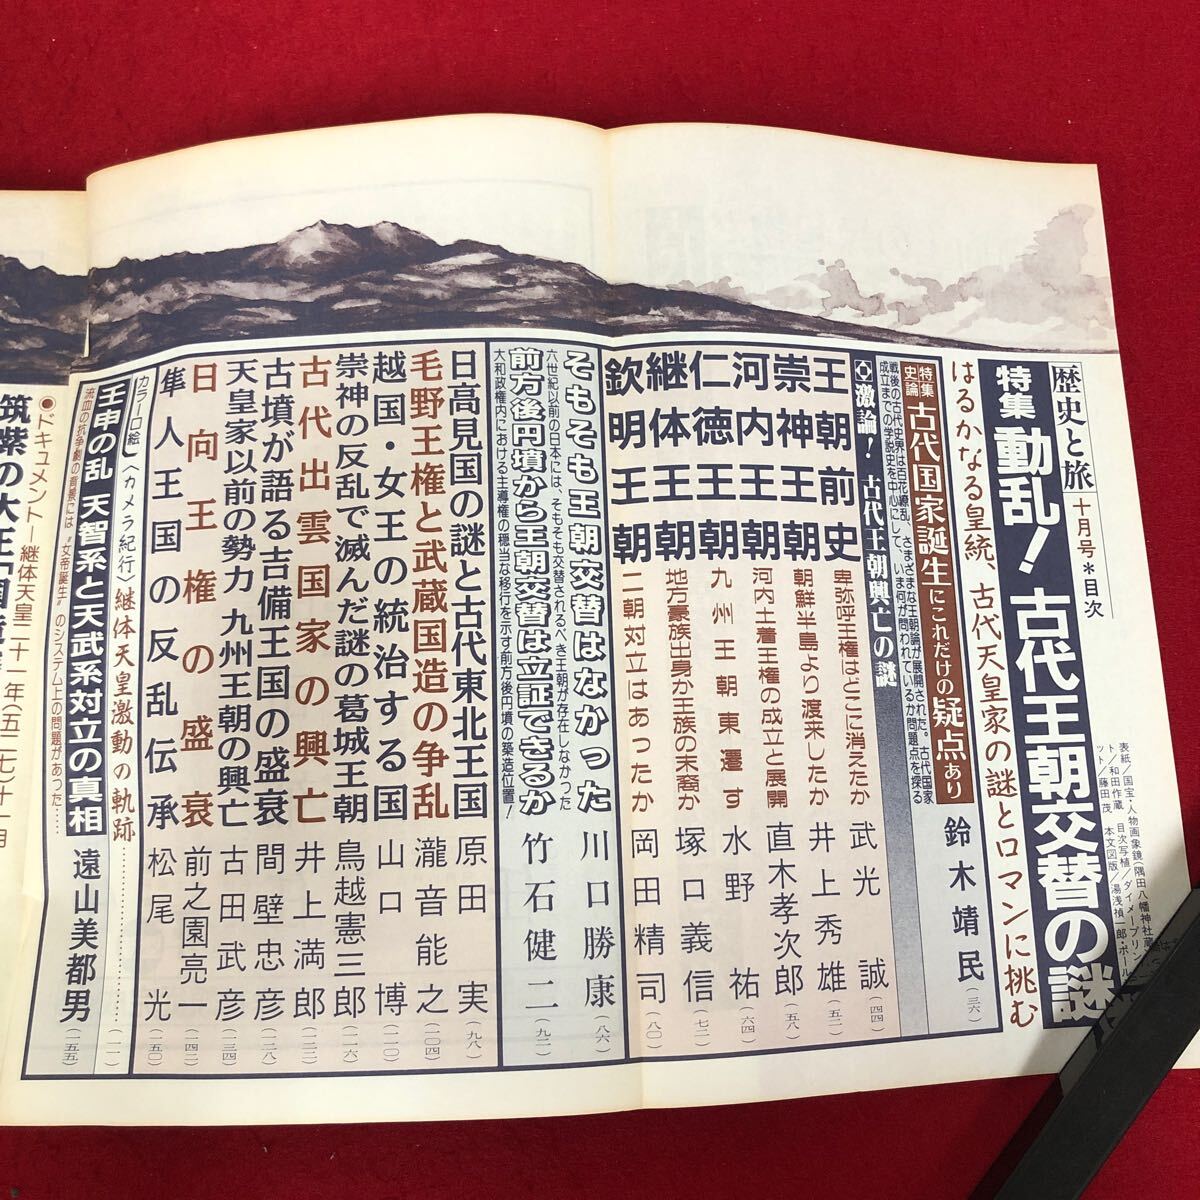 歴史と旅
十月号*目次
表紙/国宝・人物画像鏡(隅田八幡神社蔵)
ト/和田作蔵 目次写植/ダイメープリン
ット/藤田茂 本文図版/湯浅禎一郎・ポール
特集 動乱!古代王朝交替の謎
はるかなる皇統、古代天皇家の謎とロマンに挑む
特集史論 古代国家誕生にこれだけの疑点あり 鈴木靖民(三六)
戦後の古代史界は百花繚乱、さまざまな王朝論が展開された。古代国家
成立までの学説史を中心にして、いま何が問われているか問題点を探る
激論!古代王朝興亡の謎
王朝前史 卑弥呼王権はどこに消えたか 武光誠(四四)
崇神王朝 朝鮮半島より渡来したか 井上秀雄(五二)
河内王朝 河内土着王権の成立と展開 直木孝次郎(五八)
仁徳王朝 九州王朝東遷す 水野祐(六四)
継体王朝 地方豪族出身か王族の末裔か 塚口義信(七二)
欽明王朝 二朝対立はあったか 岡田精司(八〇)
そもそも王朝交替はなかった 川口勝康(八六)
六世紀以前の日本には、そもそも交替されるべき王朝が存在しなかった
前方後円墳から王朝交替は立証できるか 竹石健二(九二)
大和政権内における主導権の穏当な移行を示す前方後円墳の築造位置!
日高見国の謎と古代東北王国 原田実(九八)
毛野王権と武蔵国造の争乱 瀧音能之(一〇四)
越国・女王の統治する国 山口博(一一〇)
崇神の反乱で滅んだ謎の葛城王朝 鳥越憲三郎(一一六)
古代出雲国家の興亡 井上満郎(一二二)
古墳が語る吉備王国の盛衰 間壁忠彦(一二八)
天皇家以前の勢力 九州王朝の興亡 古田武彦(一三四)
日向王権の盛衰 前之園亮一(一四二)
隼人王国の反乱伝承 松尾光(一五〇)
カラー口絵 〈カメラ紀行〉継体天皇激動の軌跡…………(一一)
壬申の乱 天智系と天武系対立の真相 遠山美都男(一五五)
流血の抗争劇の背景には“女帝誕生”のシステム上の問題があった……
●ドキュメント―継体天皇二十一年(五二七)十一月
筑紫の大王「国造